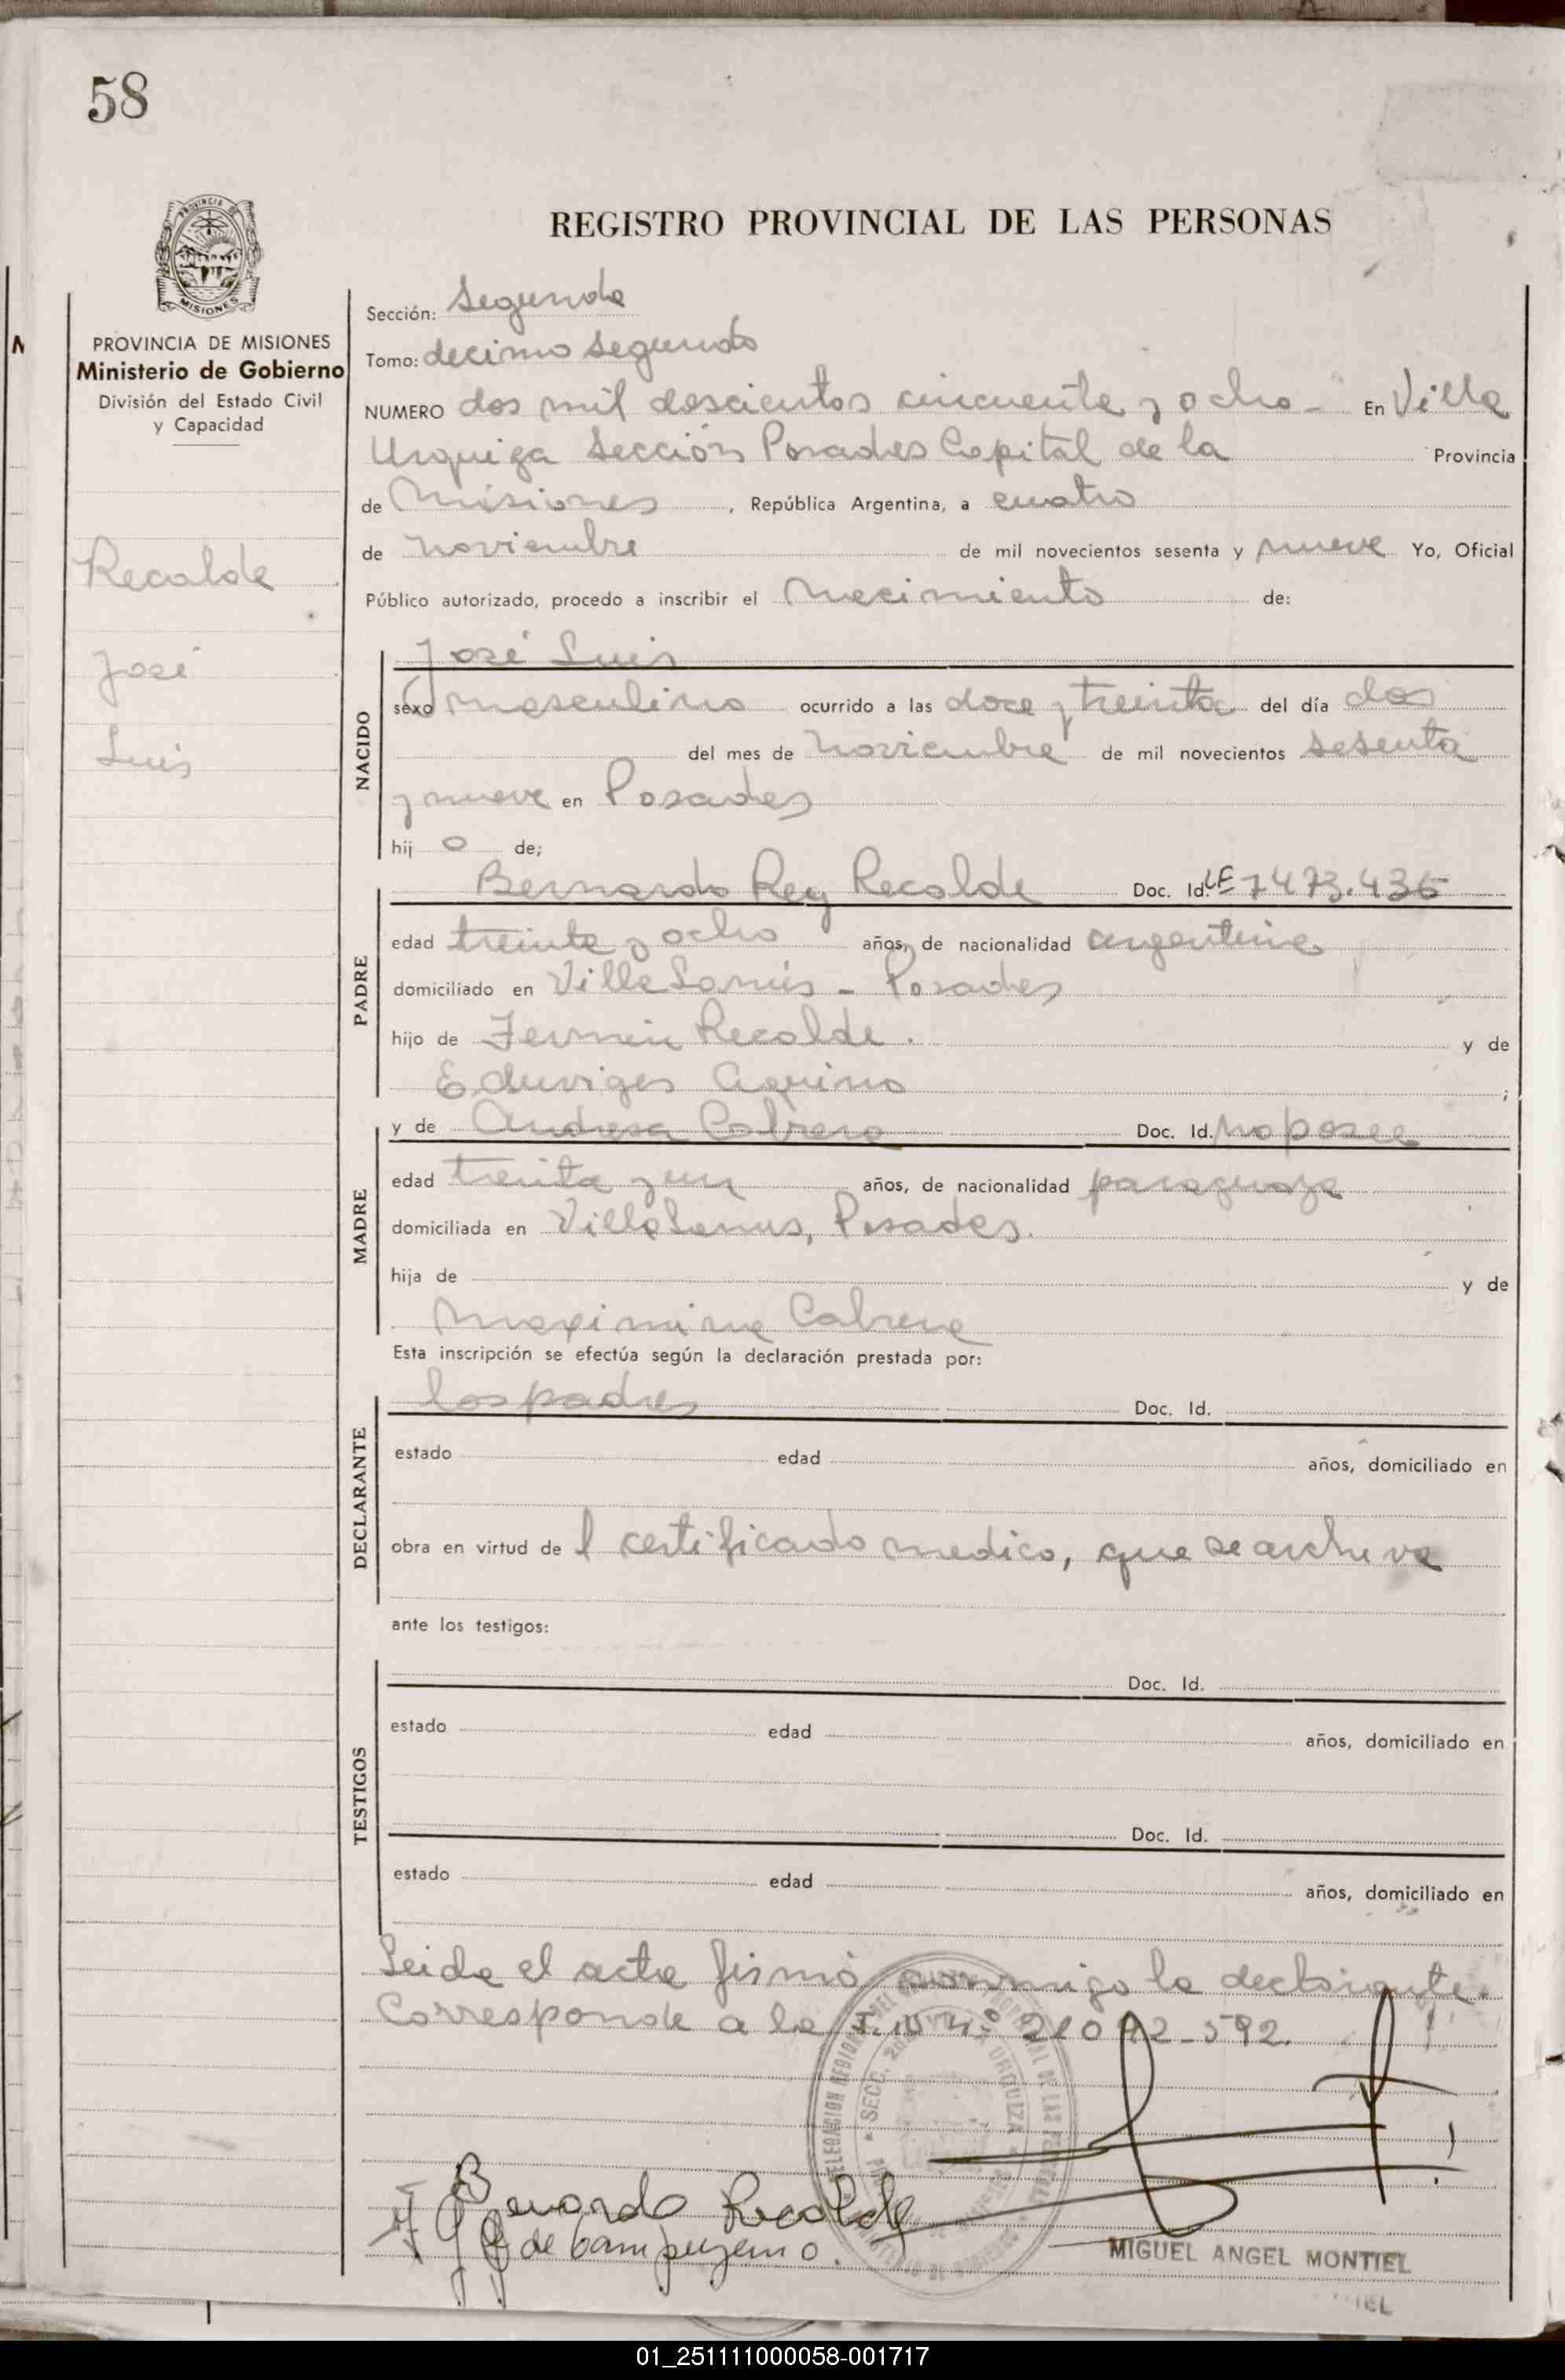 58
PROVINCIA DE MISIONES
Ministerio de Gobierno
División del Estado Civil
y Capacidad
Recalde
José
Luis
REGISTRO PROVINCIAL DE LAS PERSONAS
Sección: Segunda
Tomo: decimo segundo
NUMERO doscientos cincuenta y ocho - En Villa
Urquiza Sección Posadas Capital de la Provincia
de Misiones, República Argentina, a cuatro
de noviembre de mil novecientos sesenta y nueve Yo, Oficial
Público autorizado, procedo a inscribir el nacimiento de:
José Luis
NACIDO
sexo masculino ocurrido a las doce y treinta del día dos
del mes de noviembre de mil novecientos sesenta
y nueve en Posadas
hij o de;
Bernardo Rey Recalde Doc. Id. LE 7473.436
PADRE
edad treinta y ocho años, de nacionalidad argentina
domiciliado en Villa Lanús - Posadas
hijo de Fermin Recalde. y de
Eduviges Aquino ;
y de Andresa Cabrera Doc. Id. no posee
MADRE
edad treinta y un años, de nacionalidad paraguaya
domiciliada en Villa Lanus, Posadas.
hija de y de
Maximina Cabrera
Esta inscripción se efectúa según la declaración prestada por:
los padres Doc. Id.
DECLARANTE
estado edad años, domiciliado en
obra en virtud de l certificado medico, que se archiva
ante los testigos:
Doc. Id.
TESTIGOS
estado edad años, domiciliado en
Doc. Id.
estado edad años, domiciliado en
Leida el acta firmó conmigo la declarante.
Corresponde a la nº 21092-592.
Bernardo Recalde
de
MIGUEL ANGEL MONTIEL
01_251111000058-001717